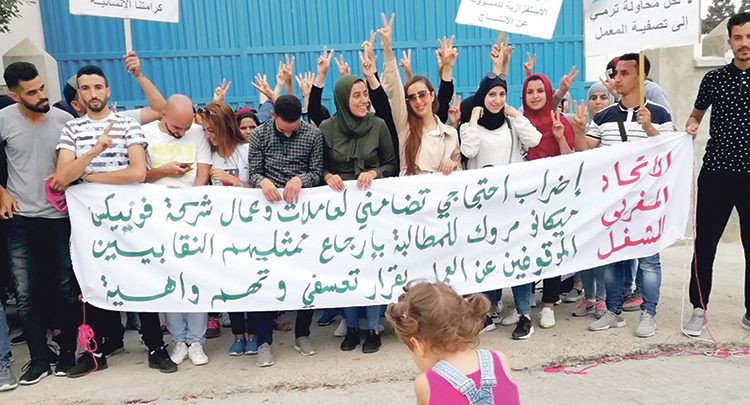 كرامتنا الإنسانية
الاستفزازية للمسؤولة
عن الإنتاج
لكل محاولة ترمي
إلى تصفية المعمل
الاتحاد
المغربي
للشغل
إضراب احتجاجي تضامني لعاملات وعمال شركة فونيكس
ميكانو مروك للمطالبة بإرجاع ممثليهم النقابيين
الموقوفين عن العمل بقرار تعسفي وتهم واهية